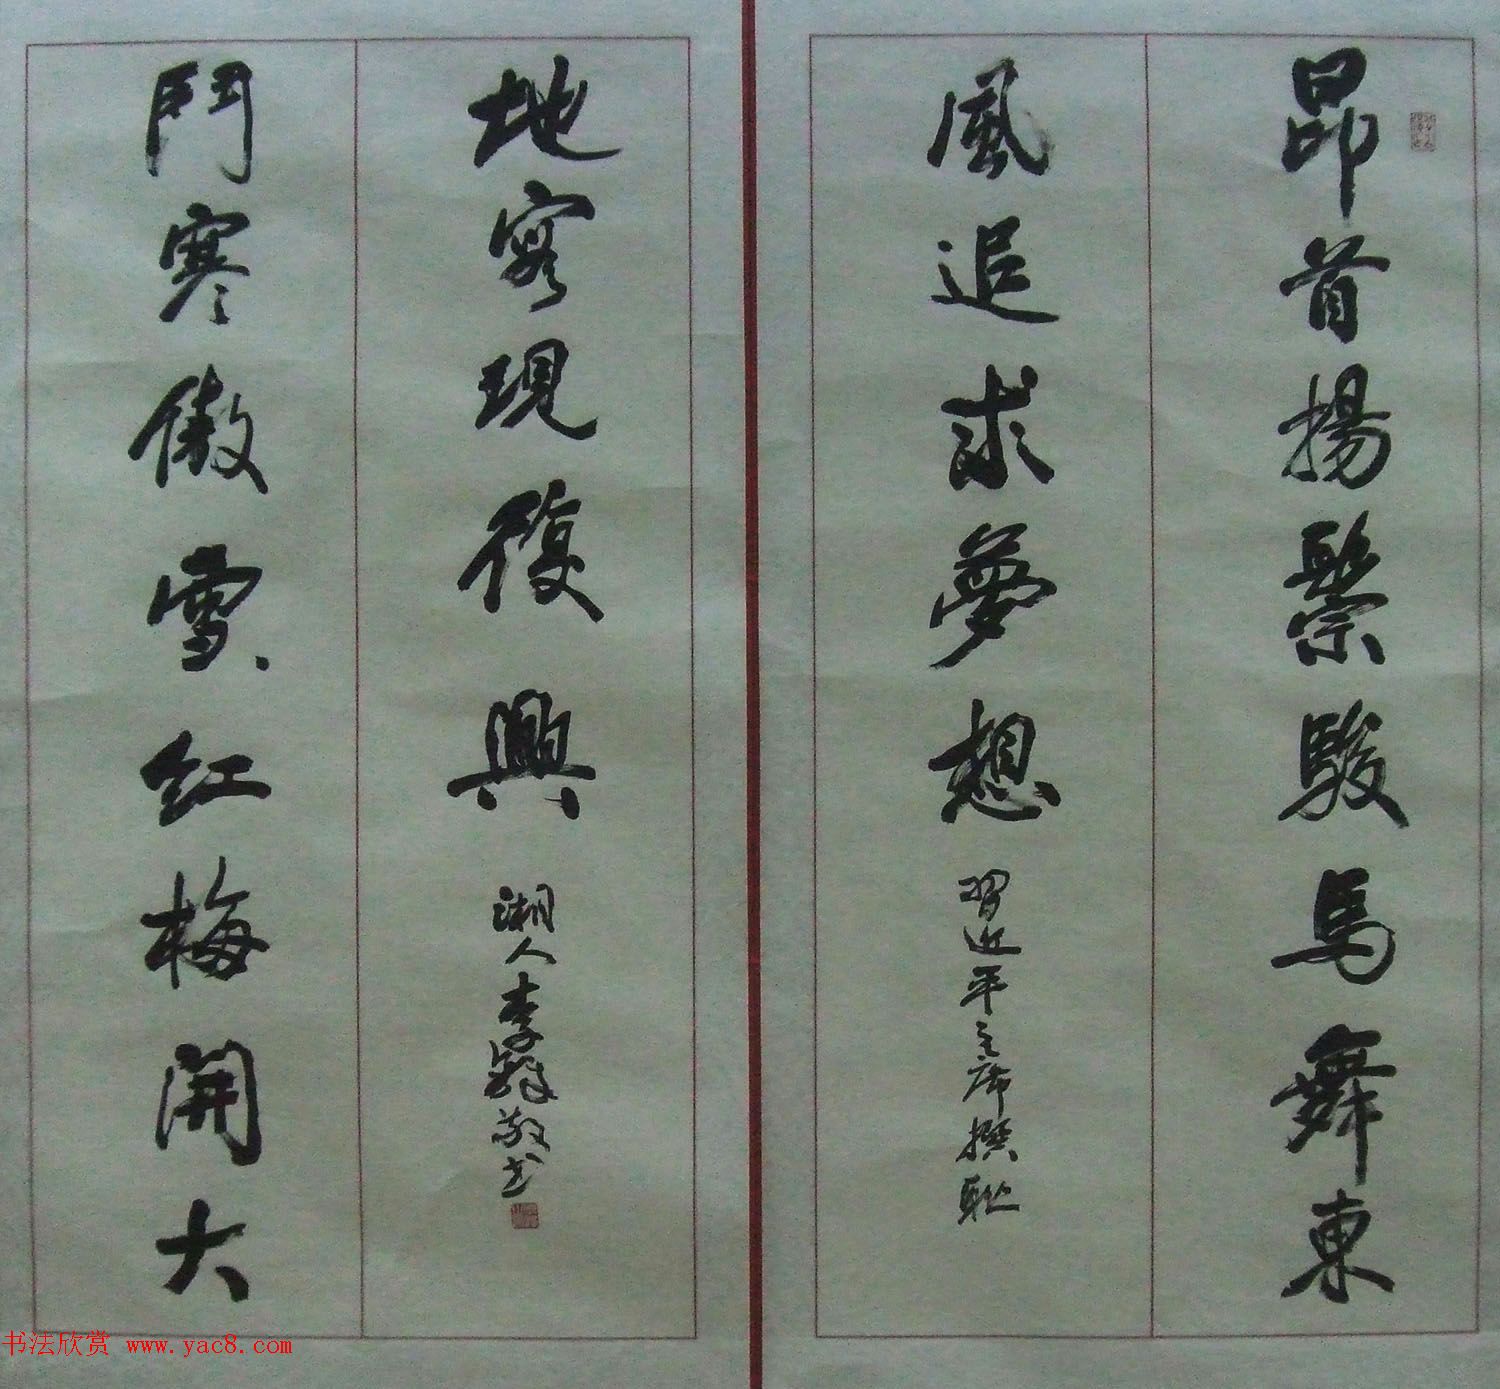 昂首揚鬃駿馬舞東
風追求夢想
習近平主席撰聯
鬥寒傲雪红梅開大
地容現復興
湘人李毅敬书
书法欣赏 www.yac8.com